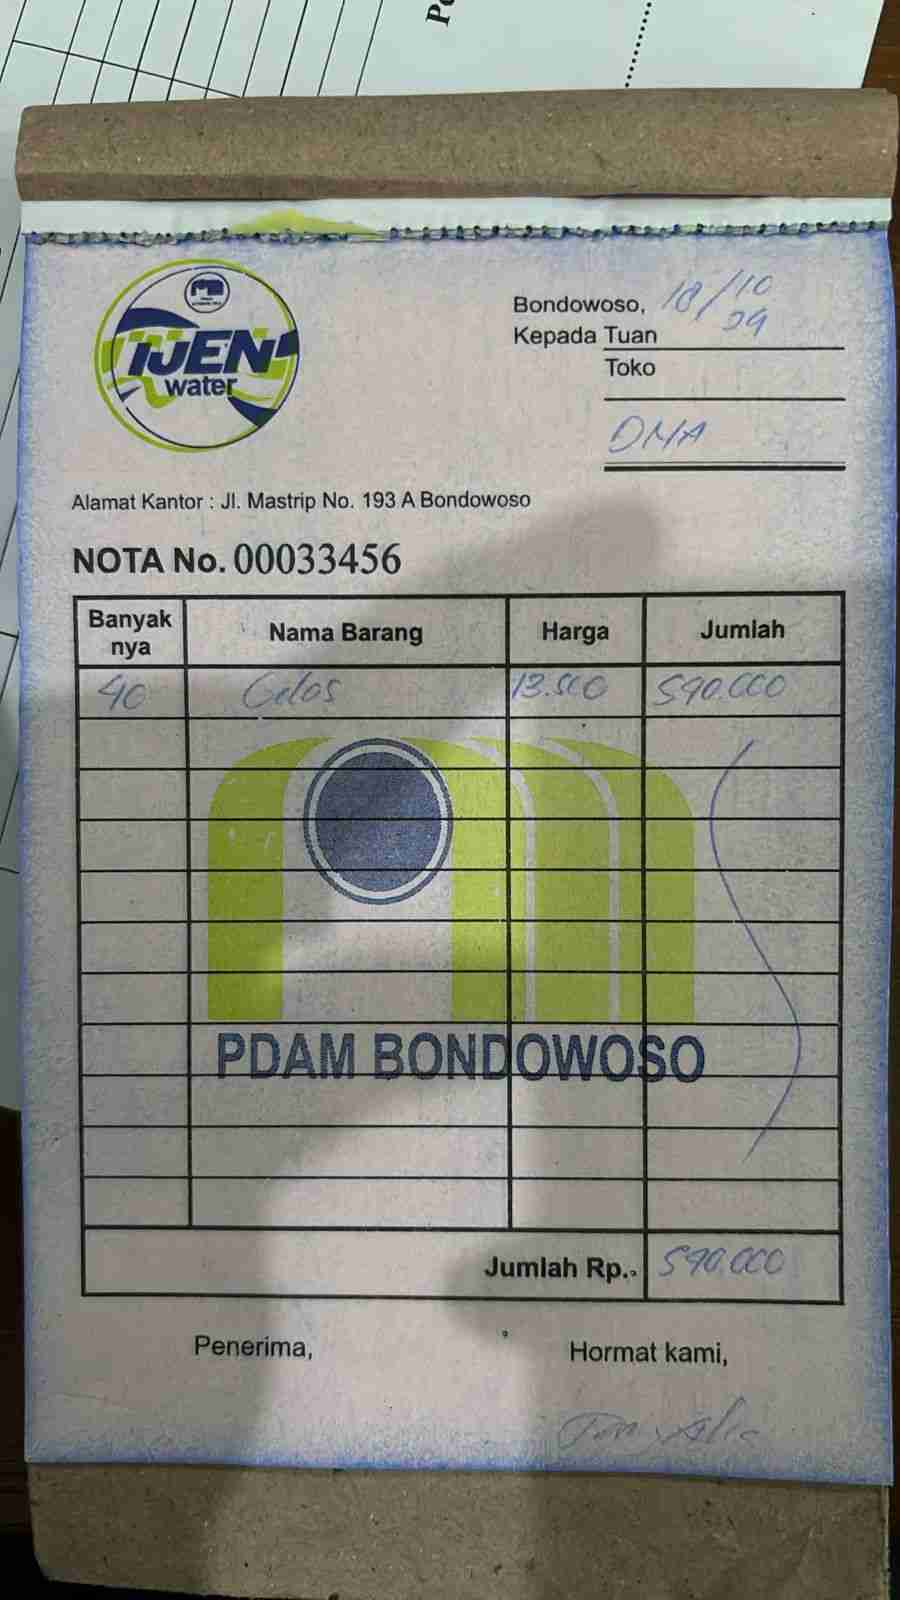 IJEN
water
Bondowoso, 18/10
24
Kepada Tuan
Toko
DMA
Alamat Kantor : Jl. Mastrip No. 193 A Bondowoso
NOTA No. 00033456
Banyak nya Nama Barang Harga Jumlah
40 Gelas 13.500 540.000
PDAM BONDOWOSO
Jumlah Rp.. 540.000
Penerima, Hormat kami,